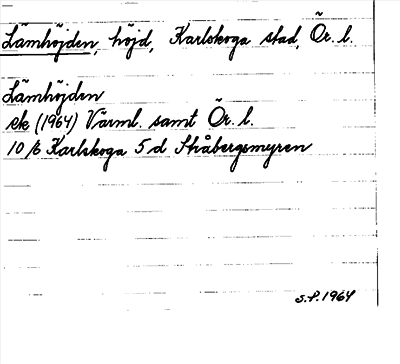 Lämhöjden, höjd, Karlskoga stad, Ör. l.
Lämhöjden
ek (1964) Värml. samt Ör. l.
10/6 Karlskoga 5 d Stråbergsmyren
S.P. 1964